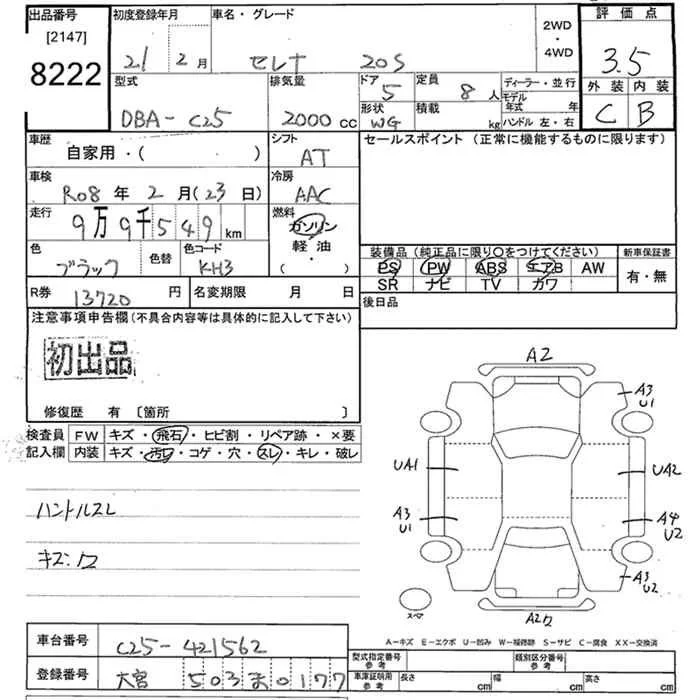 出品番号
[2147]
8222
初度登録年月
21 2月
車名・グレード
セレナ 20S
2WD
・
4WD
評価点
3.5
外装 内装
C B
型式
DBA-C25
排気量
2000 cc
ドア
5
定員
8 人
形状
WG
積載
kg
ディーラー・並行
モデル
年式 年
ハンドル 左・右
車歴
自家用・( )
シフト
AT
セールスポイント(正常に機能するものに限ります)
車検
R08年2月(23日)
冷房
AAC
走行
9万9千549 km
燃料
ガソリン
軽油
( )
色
ブラック
色替
色コード
KH3
装備品(純正品に限り○をつけてください)
PS PW ABS エアB AW
SR ナビ TV カワ
新車保証書
有・無
R券
13720 円
名変期限 月 日
後日品
注意事項申告欄(不具合内容等は具体的に記入して下さい)
初出品
修復歴 有 〔箇所 〕
検査員
記入欄
FW キズ・飛石・ヒビ割・リペア跡・×要
内装 キズ・汚レ・コゲ・穴・スレ・キレ・破レ
ハンドルスレ
キズ:ワ
A2
A3
U1
UA1
UA2
A3
U1
A4
U2
A3
U2
スペア
A2ワ
A-キズ E-エクボ U-凹み W-補修跡 S-サビ C-腐食 XX-交換済
車台番号
C25-421562
登録番号
大宮 503 ま 0177
型式指定番号
参考
類別区分番号
参考
車庫証明用
参考
長さ cm
幅 cm
高さ cm